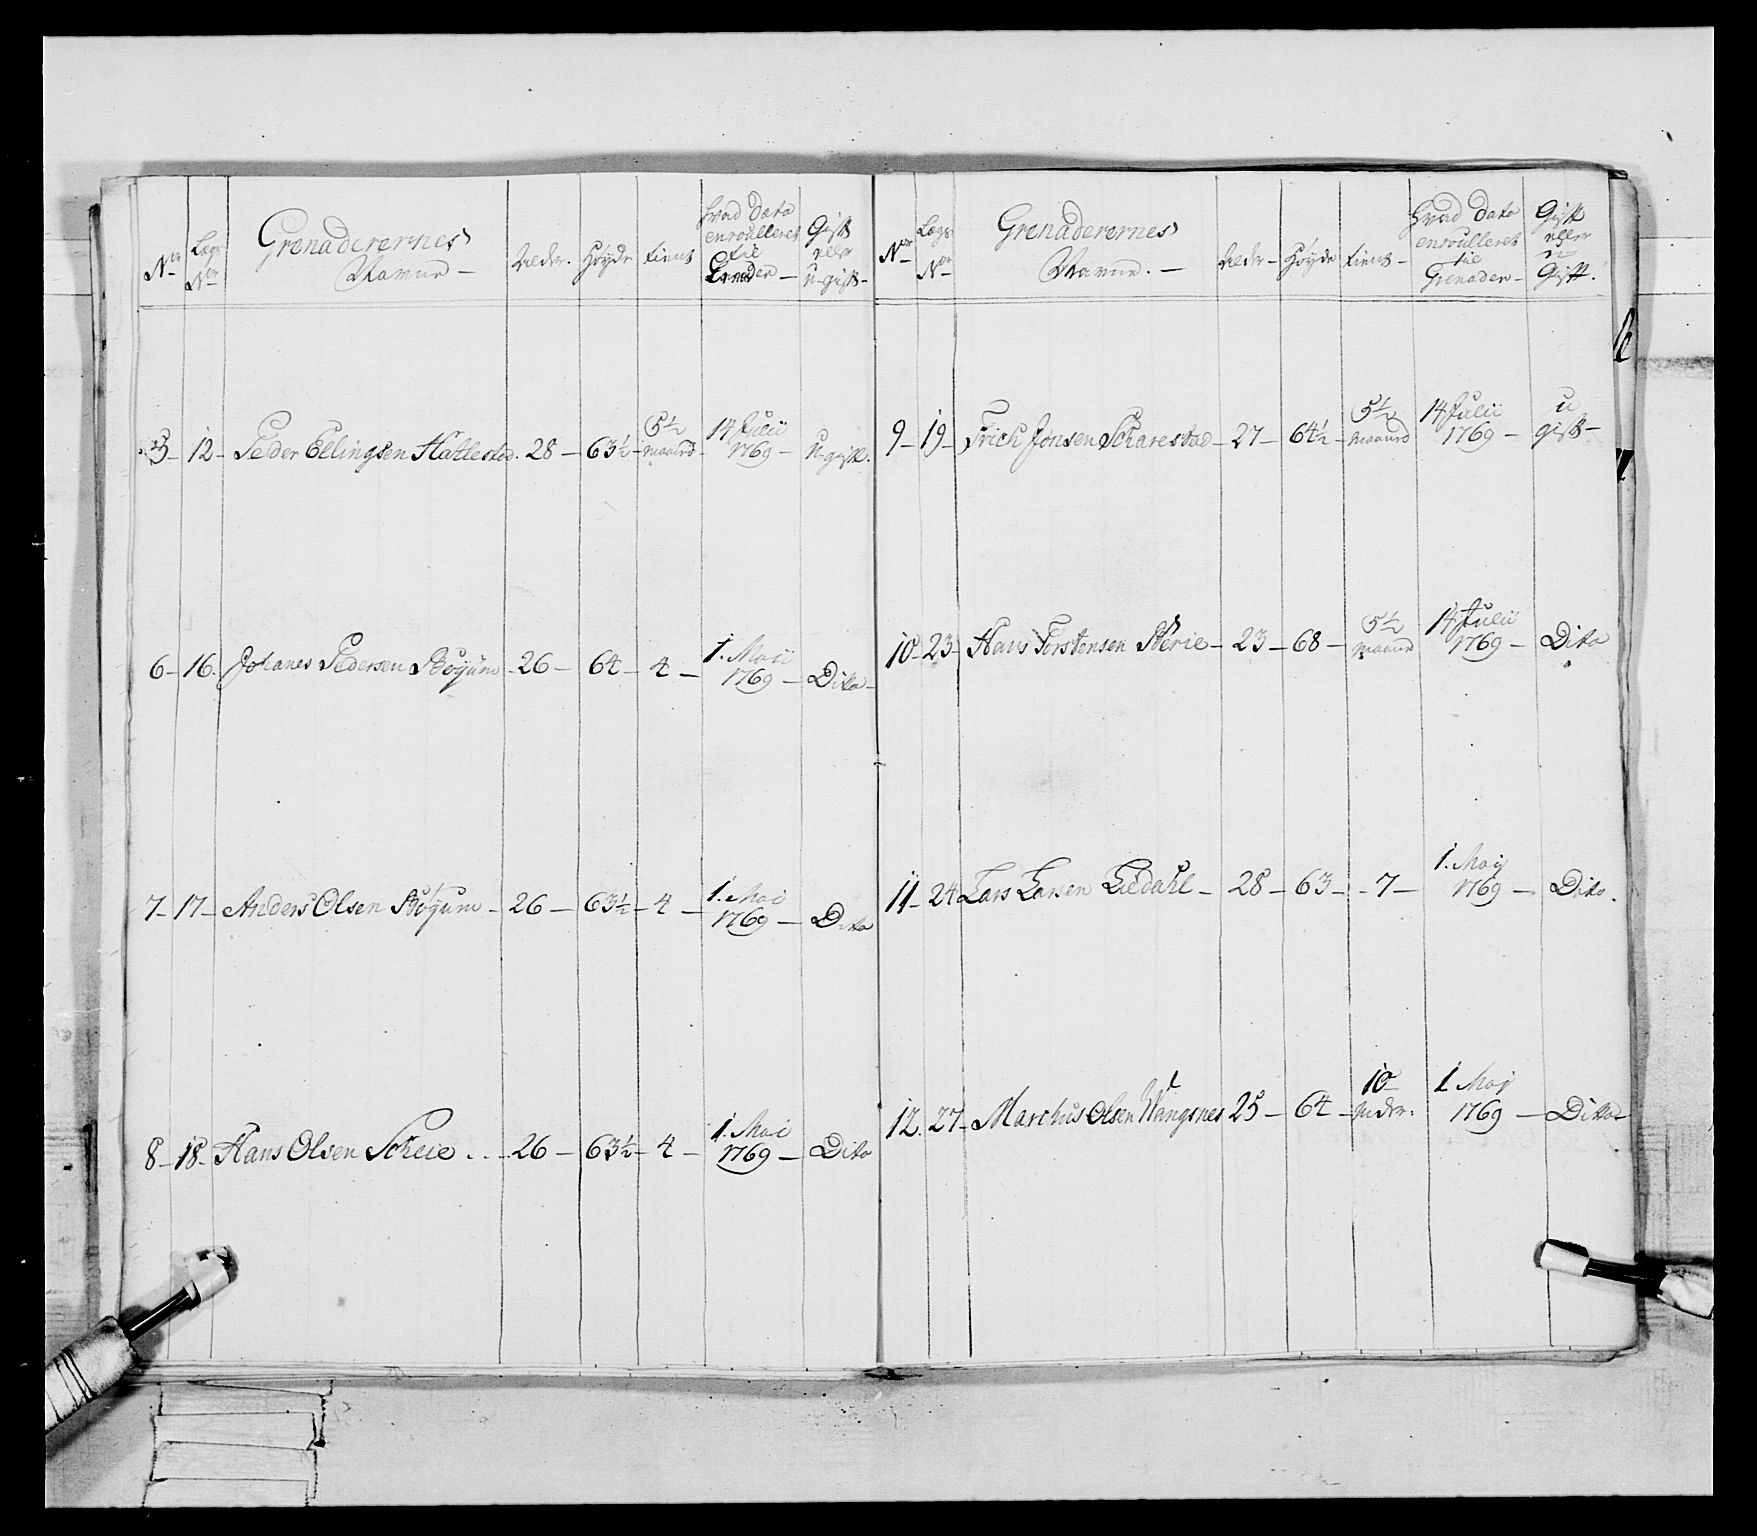 Nr Lægs Nr Grenaderernes Navne – Alder. Höyde tient hvad Dato enroulleret til Grenader – Gift eller U-gift –
5 – 12 – Peder Ellingsen Hatlestad. 28 – 63½ – 5½ maaned – 14 Julii 1769 – U-gift.
6 – 16. Johanes Pedersen Böyum – 26 – 64 – 4 – 1. Maii 1769 – Dito –
7 – 17 – Anders Olsen Böyum – 26 – 63½ – 4 – 1. Mai 1769 – Dito
8 – 18 – Hans Olsen Scheie . . – 26 – 63½ – 4 – 1. Mai 1769 – Dito
Nr Lægs Nr Grenaderernes Navne. – Alder – Höyde tient – Hvad Dato enroulleret til Grenader – Gift eller U Gift.
9 – 19 – Erich Jonsen Scharestad – 27 – 64½ – 5½ maaned 14 Julii 1769 – u gift –
10 – 23 – Hans Torstensen – 23 – 68 – 5½ maaned 14 Julii 1769 – Dito
11 – 24 Lars Larsen Lidahl – 28 – 63 – 7 – 1. Maij 1769 – Dito.
12. 27 – Marchus Olsen Wangsnes 25 – 64 – 10 1 Maij 1769 – Ditto –